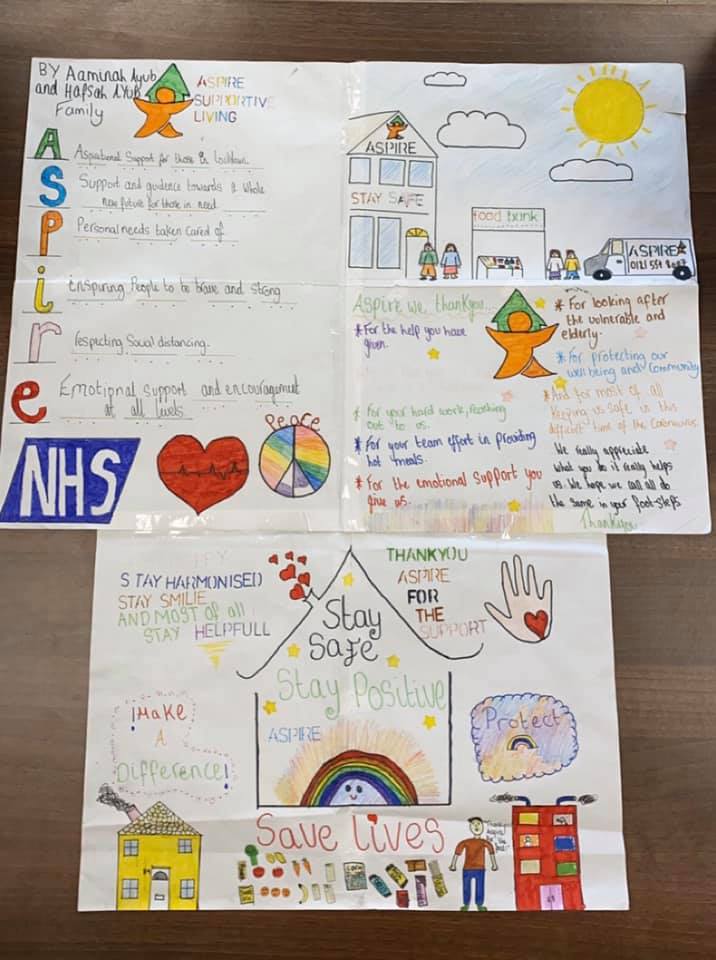 BY Aaminah Ayub
and Hafsah AYUB
Family
ASPIRE
SUPPORTIVE
LIVING
A Aspirational Support for those in Lockdown.
S Support and guidence towards a whole
new future for those in need.
P Personal needs taken cared of.
i Enspiring People to be brave and strong
r respecting Social distancing.
e Emotional support and encouragement
at all levels.
NHS
Peace
ASPIRE
STAY SAFE
food bank
ASPIRE
Aspire we thankyou...
*For the help you have
given.
* For your hard work, reaching
out to us.
* For your team effort in providing
hot meals.
* For the emotional support you
give us.
* For looking after
the vulnerable and
elderly.
* For protecting our
well being and community
*And for most of all
keeping us safe in this
difficult time of the Coronavirus.
We really appreciate
what you do it really helps
us. We hope we can all do
the same in your foot-steps
Thankyou
STAY HARMONISED
STAY SMILIE
AND MOST of all
STAY HELPFULL
THANKYOU
ASPIRE
FOR
THE
SUPPORT
Stay
Safe
Stay Positive
ASPIRE
!Make
A
Difference!
Protect
Save Lives